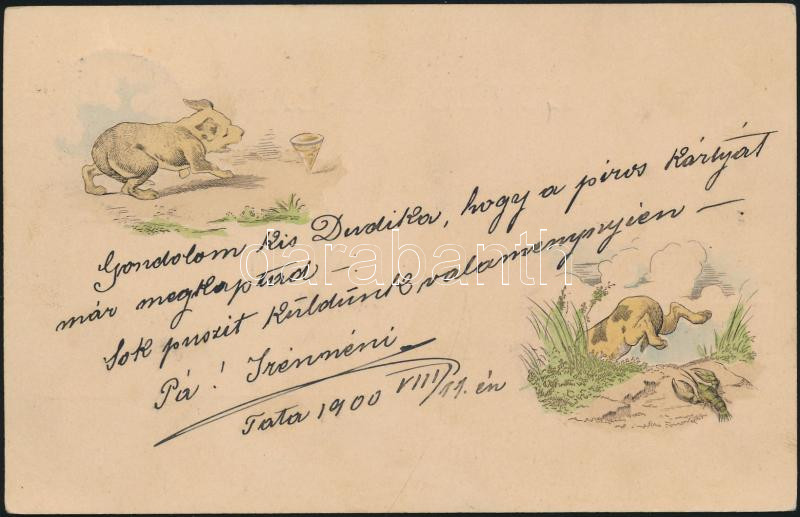 Gondolom kis Dudika, hogy a piros kártyát
már megkaptad –
Sok puszit küldünk valamennyien –
Pá! Irénnéni
Tata 1900 VIII/11. én
darabanth